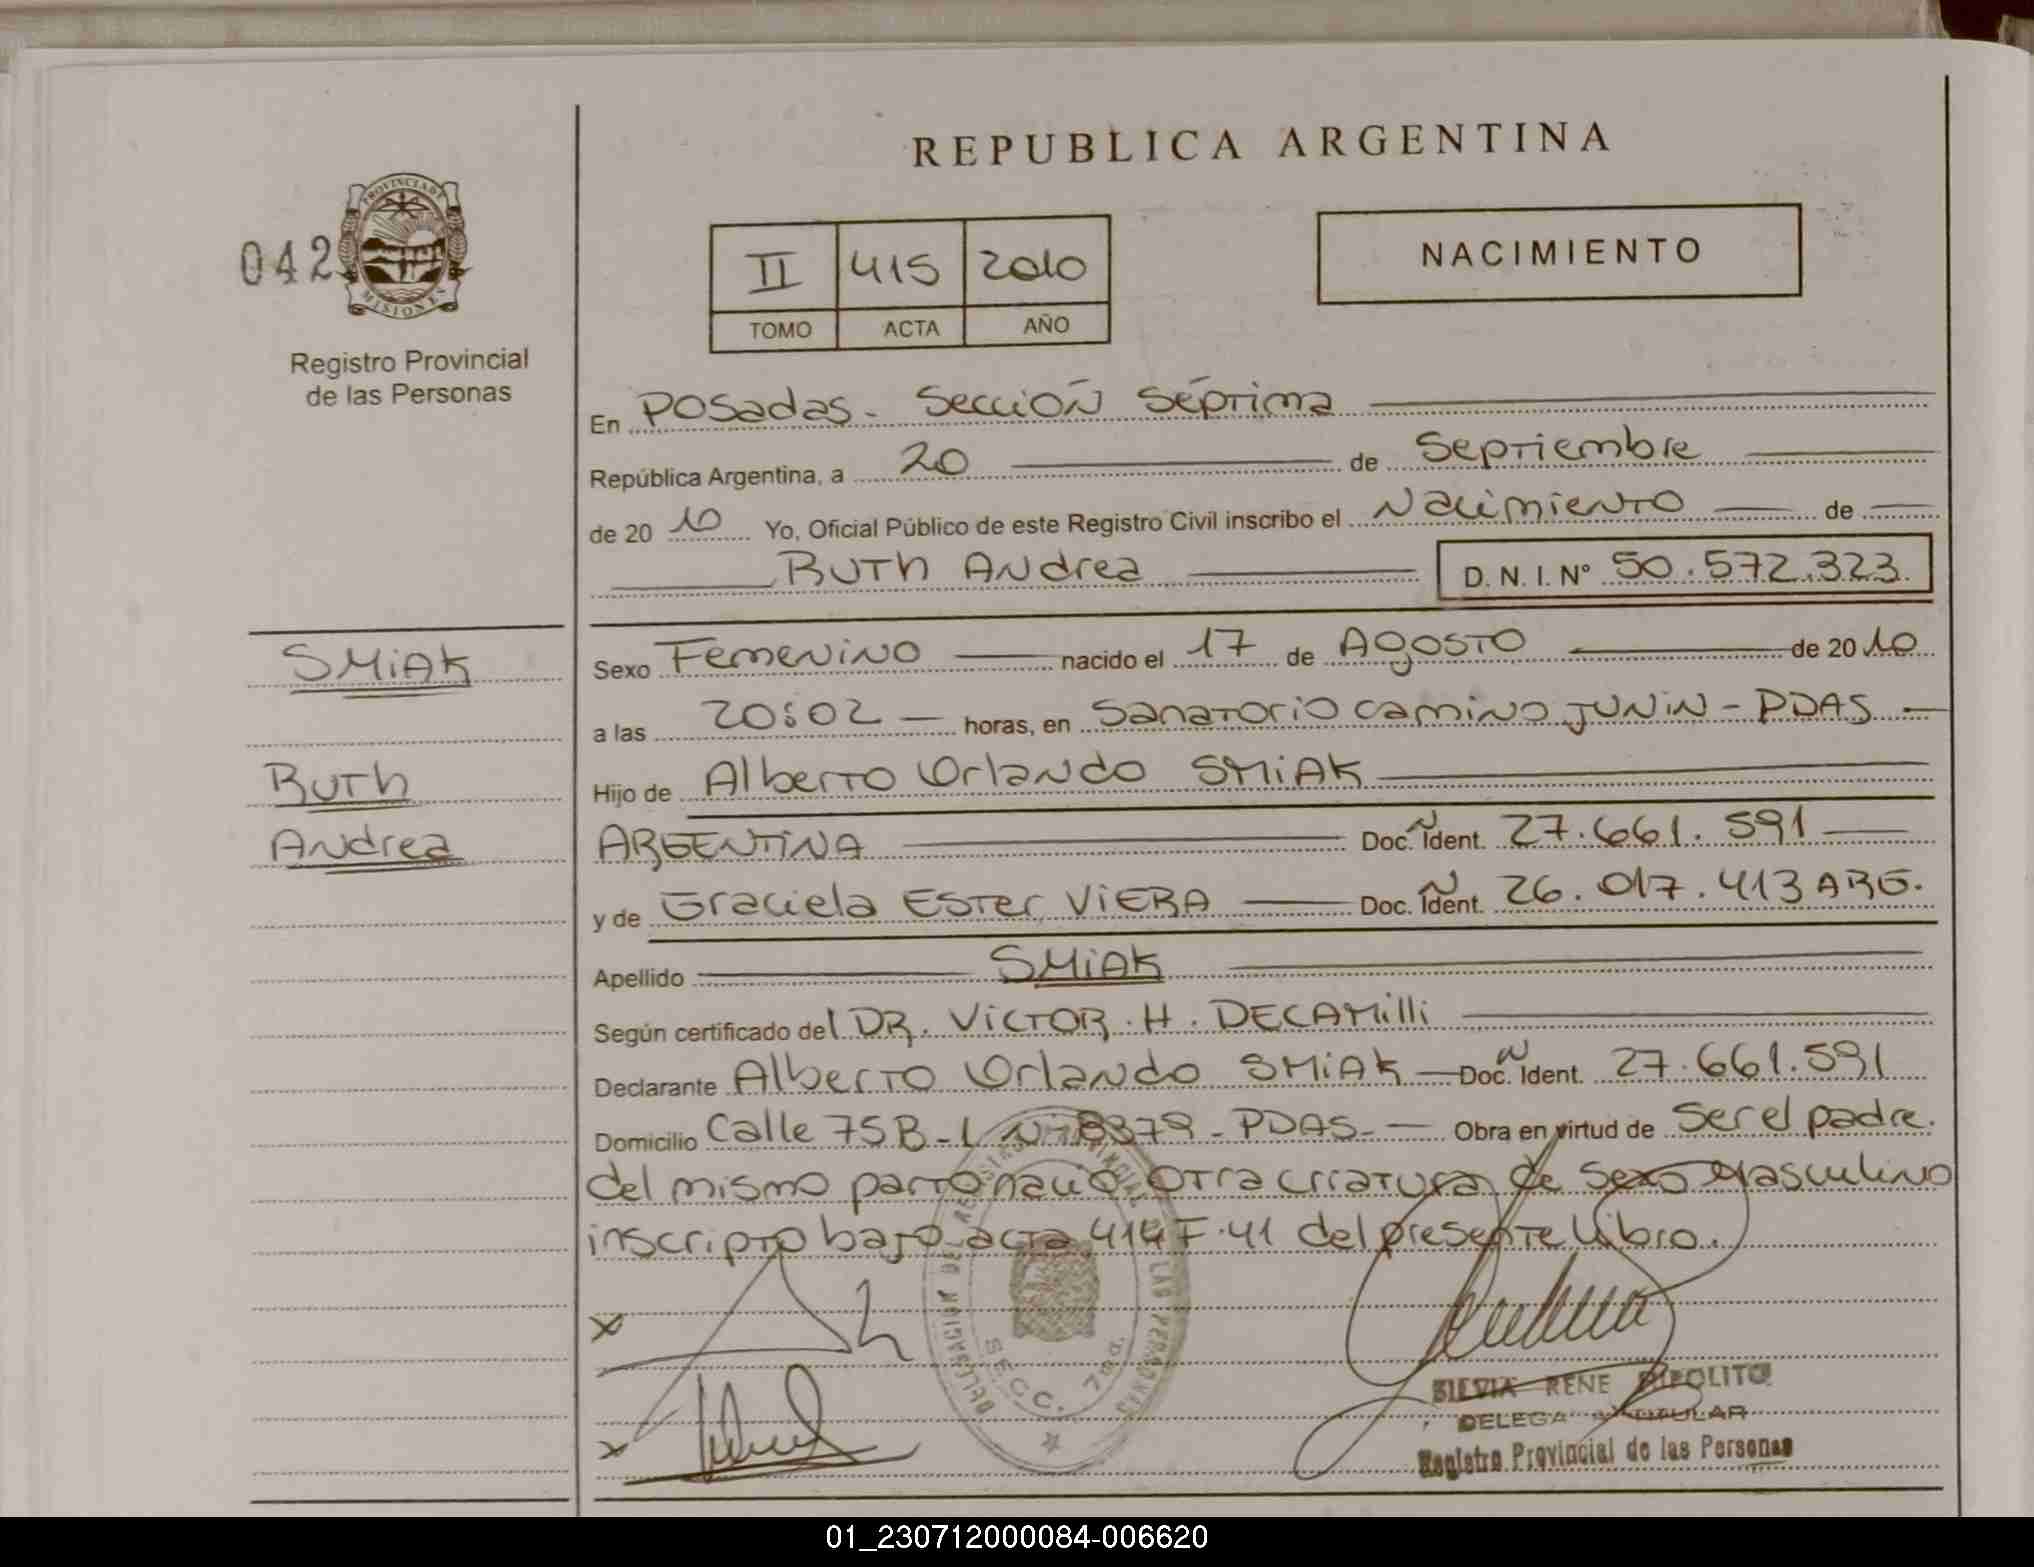 REPUBLICA ARGENTINA
042
PROVINCIA DE
MISIONES
Registro Provincial
de las Personas
II 415 2010
TOMO ACTA AÑO
NACIMIENTO
En Posadas - Sección Séptima
República Argentina, a 20 de Septiembre
de 20 10 Yo, Oficial Público de este Registro Civil inscribo el Nacimiento de
Ruth Andrea D. N. I. N° 50.572.323
SMiAK
Ruth
Andrea
Sexo Femenino nacido el 17 de Agosto de 20 10
a las 20:02 horas, en Sanatorio camino JUNIN - PDAS
Hijo de Alberto Orlando SMiAK
ARGENTINA Doc. Ident. 27.661.591
y de Graciela Ester ViERA Doc. Ident. 26.017.413 ARG.
Apellido SMiAK
Según certificado del DR. VICTOR. H. DECAMilli
Declarante Alberto Orlando SMiAK Doc. Ident. 27.661.591
Domicilio Calle 75B - N 8379 - PDAS - Obra en virtud de Ser el padre.
del mismo parto nació otra criatura de sexo Masculino
inscripto bajo acta 414 F. 41 del presente Libro.
SECC. 7ma.
SILVIA RENE HIPOLITO
DELEGADA TITULAR
Registro Provincial de las Personas
01_230712000084-006620